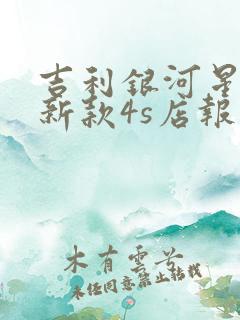 吉利銀河星
新款4s店報
木有雲兮
未任同意禁止转载